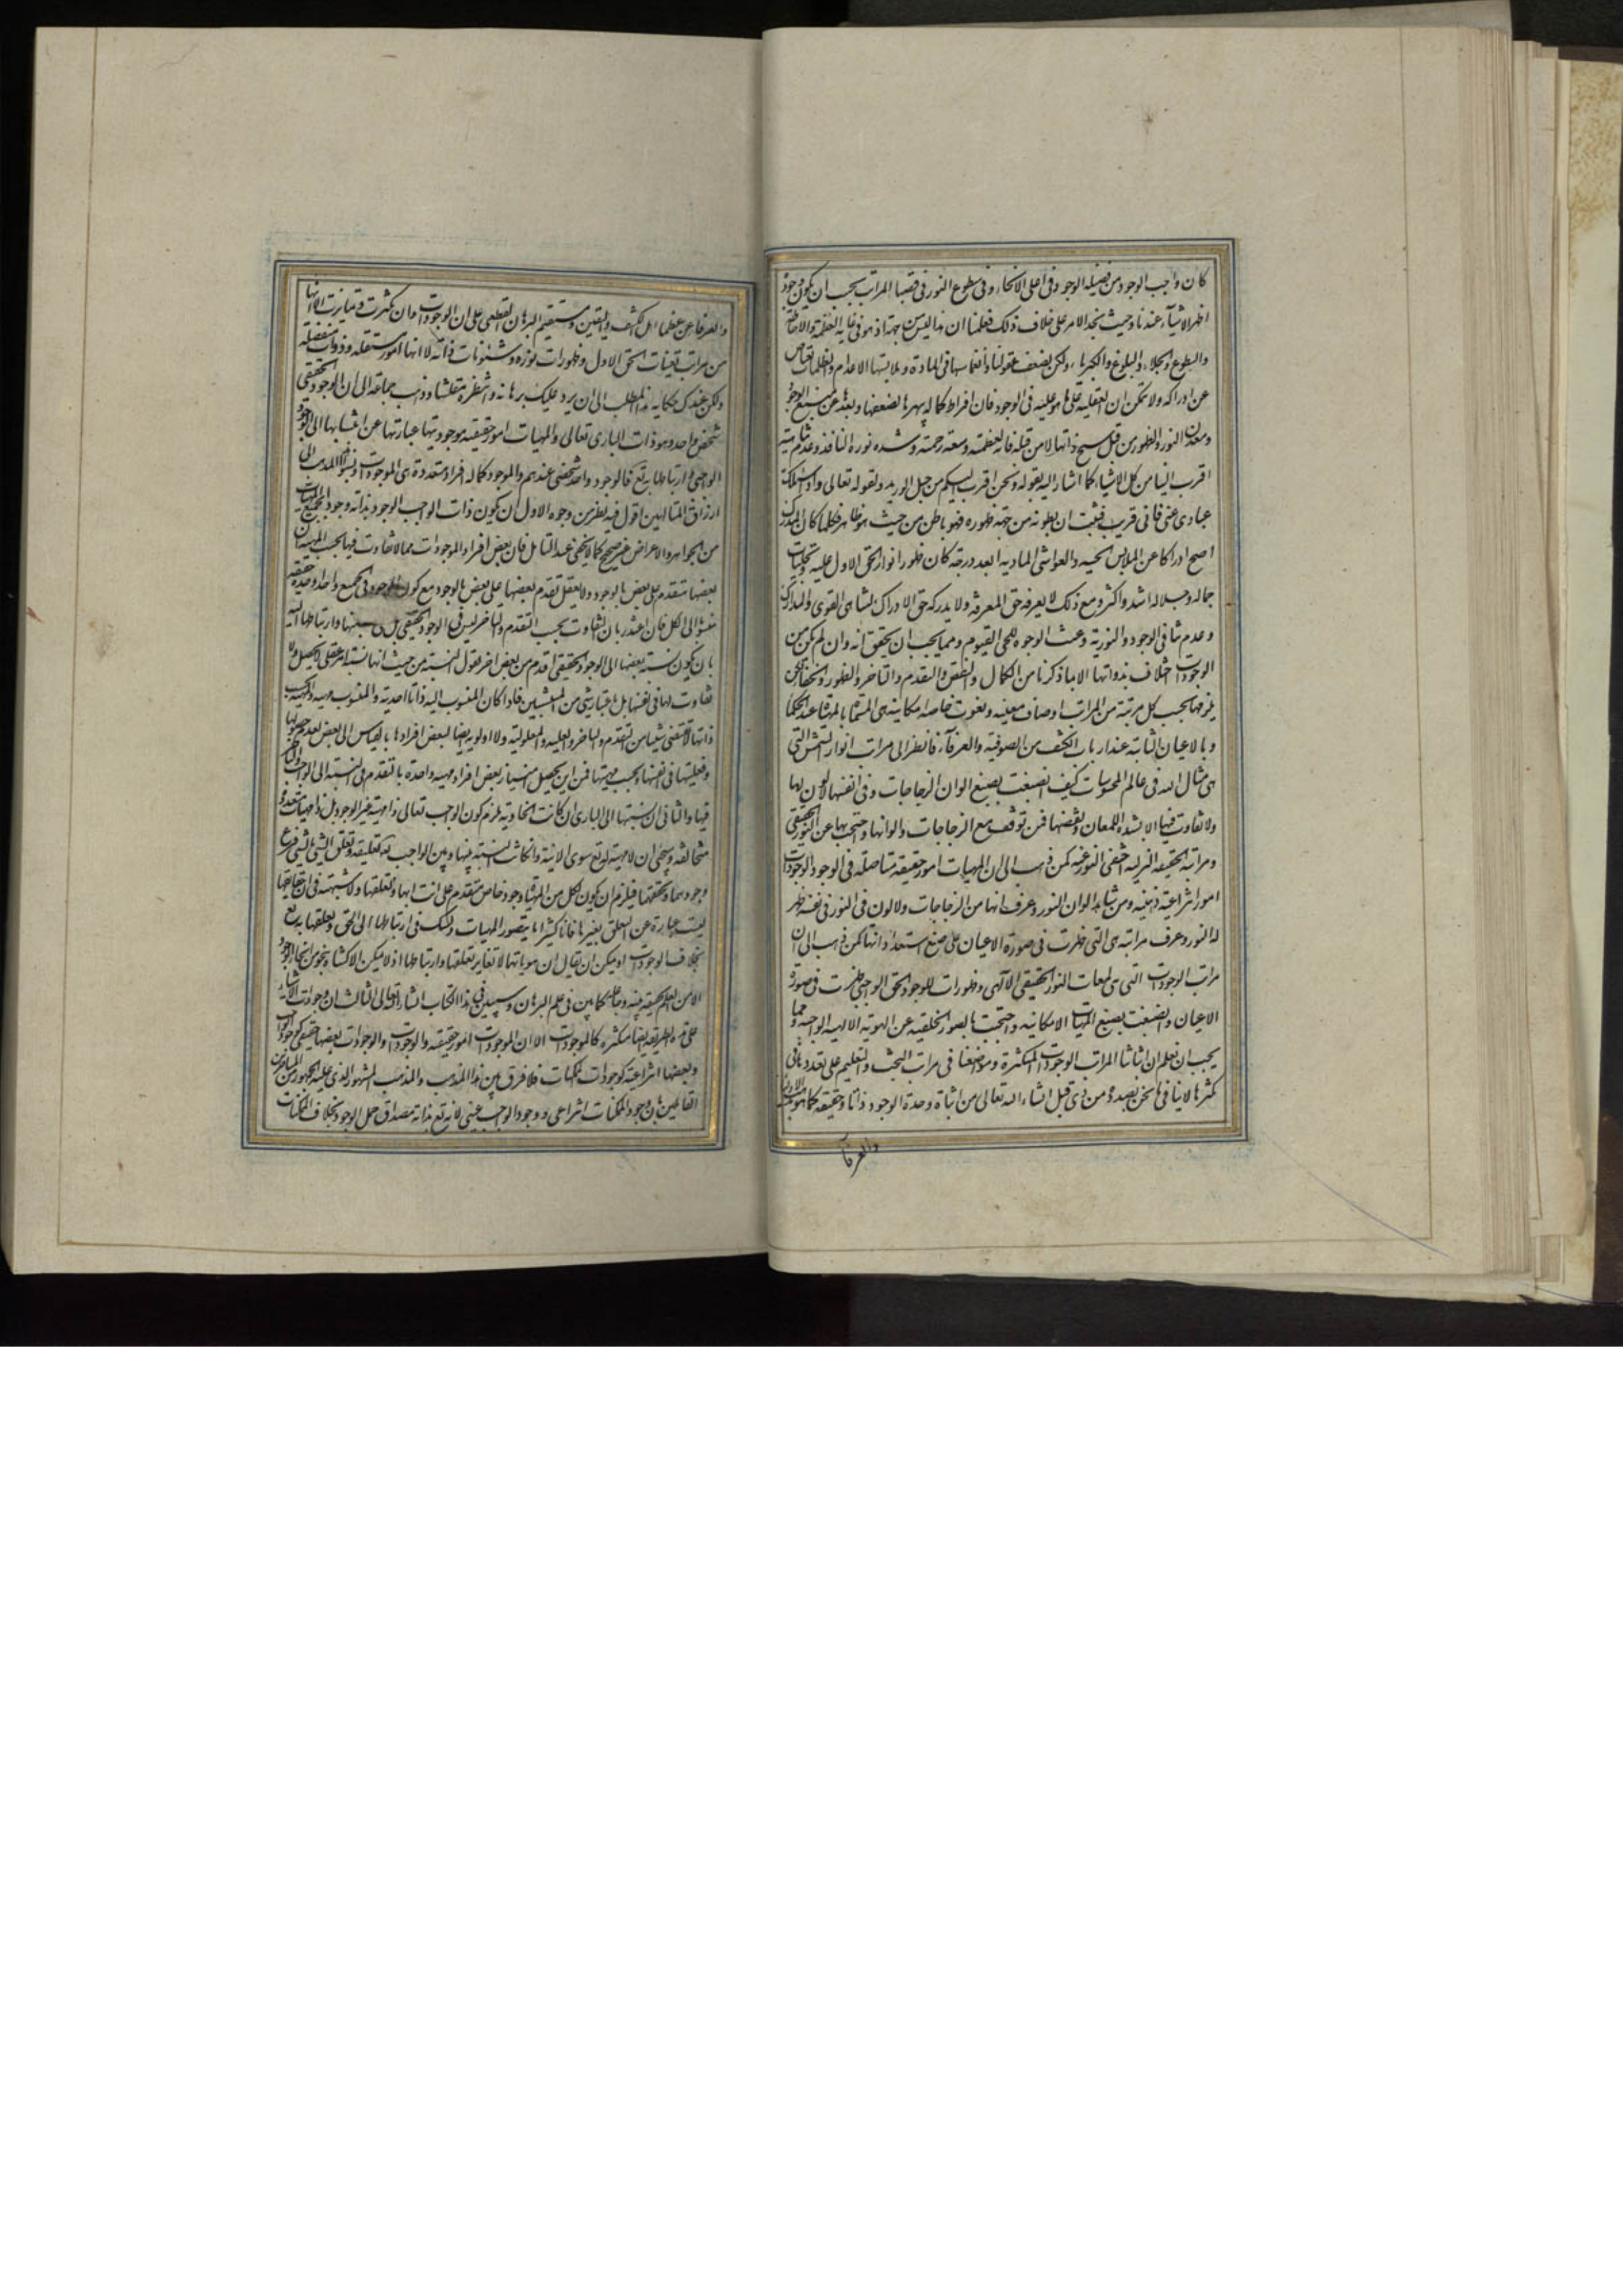 كان واجب الوجود من فضيلة الوجود فى اعلى الانحاء وفى سطوع النور فى قصيا المراتب يجب ان يكون وجوده
اظهر الاشياء عندنا وحيث نجد الامر على خلاف ذلك فعلمنا ان ذلك ليس من جهته اذ هو فى غاية العظمة والاحاطة
والسطوع والجلاء والبلوغ والكبرياء ولكن لضعف عقولنا وانغماسها فى المادة وملابستها الاعدام والظلمات تعتاص
عن ادراكه ولا تتمكن ان تعقله على ما هو عليه فى الوجود فان افراط كماله يبهرها لضعفها وبعدها عن منبع الوجود
ومعدن النور والظهور من قبل سنخ ذاتها لا من قبله فانه لعظمته وسعة رحمته وشدة نوره النافذ وعدم تناهيه
اقرب الينا من كل الاشياء كما اشار اليه بقوله ونحن اقرب اليكم من حبل الوريد وبقوله تعالى واذا سئلك
عبادى عنى فانى قريب فثبت ان بطونه من جهة ظهوره فهو باطن من حيث هو ظاهر فكلما كان المدرك
اصح ادراكا عن الملابس الحسية والغواشى المادية ابعد درجة كان ظهور انوار الحق الاول عليه وتجليات
جماله وجلاله اشد واكثر ومع ذلك لا يعرفه حق المعرفة ولا يدركه حق الادراك لتناهى القوى والمدارك
وعدم تناهى الوجود والنورية وعنت الوجوه للحى القيوم ومما يجب ان يحقق انه وان لم يكن بين
الوجودات اختلاف بذواتها الا بما ذكرنا من الكمال والنقص والتقدم والتاخر والظهور والخفاء لكن
يلزمها بحسب كل مرتبة من المراتب اوصاف معينة ونعوت خاصة امكانية هى المسماة بالمهيات عند الحكماء
وبالاعيان الثابتة عند ارباب الكشف من الصوفية والعرفاء فانظر الى مراتب انوار الشمس التى
هى مثال الله فى عالم المحسوسات كيف انصبغت بصبغ الوان الزجاجات وفى انفسها لا لون لها
ولا تفاوت فيها الا بشدة اللمعان ونقصها فمن توقف مع الزجاجات والوانها واحتجب بها عن النور الحقيقى
ومراتبه الحقيقية التنزلية اختفى النور عنه كمن ذهب الى ان المهيات امور حقيقية متاصلة فى الوجود والوجودات
امور انتزاعية ذهنية ومن شاهد الوان النور وعرف انها من الزجاجات ولا لون فى النور فى نفسه ظهر
له النور وعرف مراتبه هى التى ظهرت فى صورة الاعيان على صبغ استعداداتها كمن ذهب الى ان
مراتب الوجودات التى هى لمعات النور الحقيقى الالهى وظهورات للوجود الحق الواجبى ظهرت فى صورة
الاعيان وانصبغت بصبغ المهيات الامكانية واحتجبت بالصور الخلقية عن الهوية الالهية الواجبية ومما
يجب ان نعلم ان اثباتنا المراتب الوجودات المتكثرة ومواضعتنا فى مراتب البحث والتعليم على تعددها فى
تكثرها لا ينافى ما نحن بصدده من ذى قبل انشاء الله تعالى من اثبات وحدة الوجود ذاتا وحقيقة كما هو مذهب الاولياء
والعرفاء
والعرفاء من عظماء اهل الكشف واليقين وسنقيم البرهان القطعى على ان الوجودات وان تكثرت وتمايزت الا انها
من مراتب تعينات الحق الاول وظهورات نوره وشئونات ذاته لا انها امور مستقلة وذوات منفصلة
وليكن عندك حكاية هذا المطلب الى ان يرد عليك برهانه وانتظره مفتشا وذهب جماعة الى ان الوجود الحقيقى
شخص واحد وهو ذات البارى تعالى والمهيات امور حقيقية موجوديتها عبارة عن انتسابها الى الوجود
الواجبى وارتباطها به تع فالوجود واحد شخصى عندهم والموجود كلى له افراد متعددة هى الموجودات ونسبوا هذا المذهب الى
اذواق المتالهين اقول فيه نظر من وجوه الاول ان كون ذات الواجب الوجود بذاته وجودا لجميع المهيات
من الجواهر والاعراض غير صحيح كما لا يخفى عند التامل فان بعض افراد الموجودات مما لا تفاوت فيها بحسب المهية مع ان
بعضها متقدم على بعض بالوجود ولا يعقل تقدم بعضها على بعض بالوجود مع كون الوجود فى الجميع واحدا وحدة حقيقية
منسوبا الى الكل فان اعتذر بان التفاوت بحسب التقدم والتاخر ليس فى الوجود الحقيقى بل فى نسبتها وارتباطها اليه
بان يكون نسبة بعضها الى الوجود الحقيقى اقدم من بعض اخر نقول النسبة من حيث انها نسبة امر عقلى لا تحصل ولا
تفاوت لها فى نفسها بل باعتبار شئ من المنتسبين فاذا كان المنسوب اليه ذاتا احدية والمنسوب مهية والمهية بحسب
ذاتها لا تقتضى شيئا من التقدم والتاخر والعلية والمعلولية ولا اولوية ايضا لبعض افرادها بالقياس الى بعض لعدم حصولها
وفعليتها فى نفسها وبحسب مهيتها فمن اين يحصل امتياز بعض افراد مهية واحدة بالتقدم فى النسبة الى الواجب والتاخر
فيها والثانى ان نسبتها الى البارى ان كانت اتحادية يلزم كون الواجب تعالى ذا مهية غير الوجود بل ذا مهيات متعددة
متخالفة وسيجئ ان لا مهية له تع سوى الانية وان كانت النسبة بينها وبين الواجب تع تعلقية وتعلق الشئ بالشئ فرع
وجودهما وتحققهما فيلزم ان يكون لكل من المهيات وجود خاص متقدم على انتسابها وتعلقها ولا شبهة فى ان حقايقها
ليست عبارة عن التعلق بغيرها فانا كثيرا ما نتصور المهيات ونشك فى ارتباطها الى الحق وتعلقها به تع
بخلاف الوجودات اذ يمكن ان يقال ان هوياتها لا تغاير تعلقها وارتباطها اذ لا يمكن الاكتناه بنحو من انحاء الوجود
الا من العلم بحقيقة سببه وجاعله كما بين فى علم البرهان وسيبين فى هذا الكتاب انشاء الله تعالى الثالث ان وجودات الاشياء
على هذه الطريقة ايضا متكثرة كالموجودات الا ان الموجودات امور حقيقية والوجودات بعضها حقيقى كوجود الواجب
وبعضها انتزاعية كوجودات الممكنات فلا فرق بين هذا المذهب والمذهب المشهور الذى عليه الجمهور من المتاخرين
القائلين بان وجود الممكنات انتزاعى ووجود الواجب عينى لانه تع بذاته مصداق حمل الوجود بخلاف الممكنات